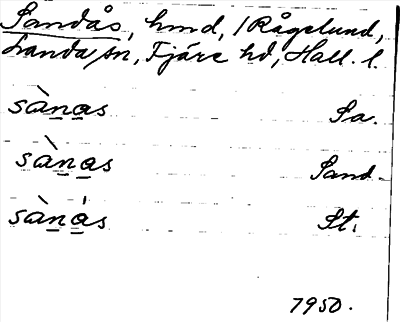 Sandås, hmd, /Rågelund,
Landa sn, Fjäre hd, Hall. l.
sànas Sa.
sànas Sand.
sànás St.
1950.